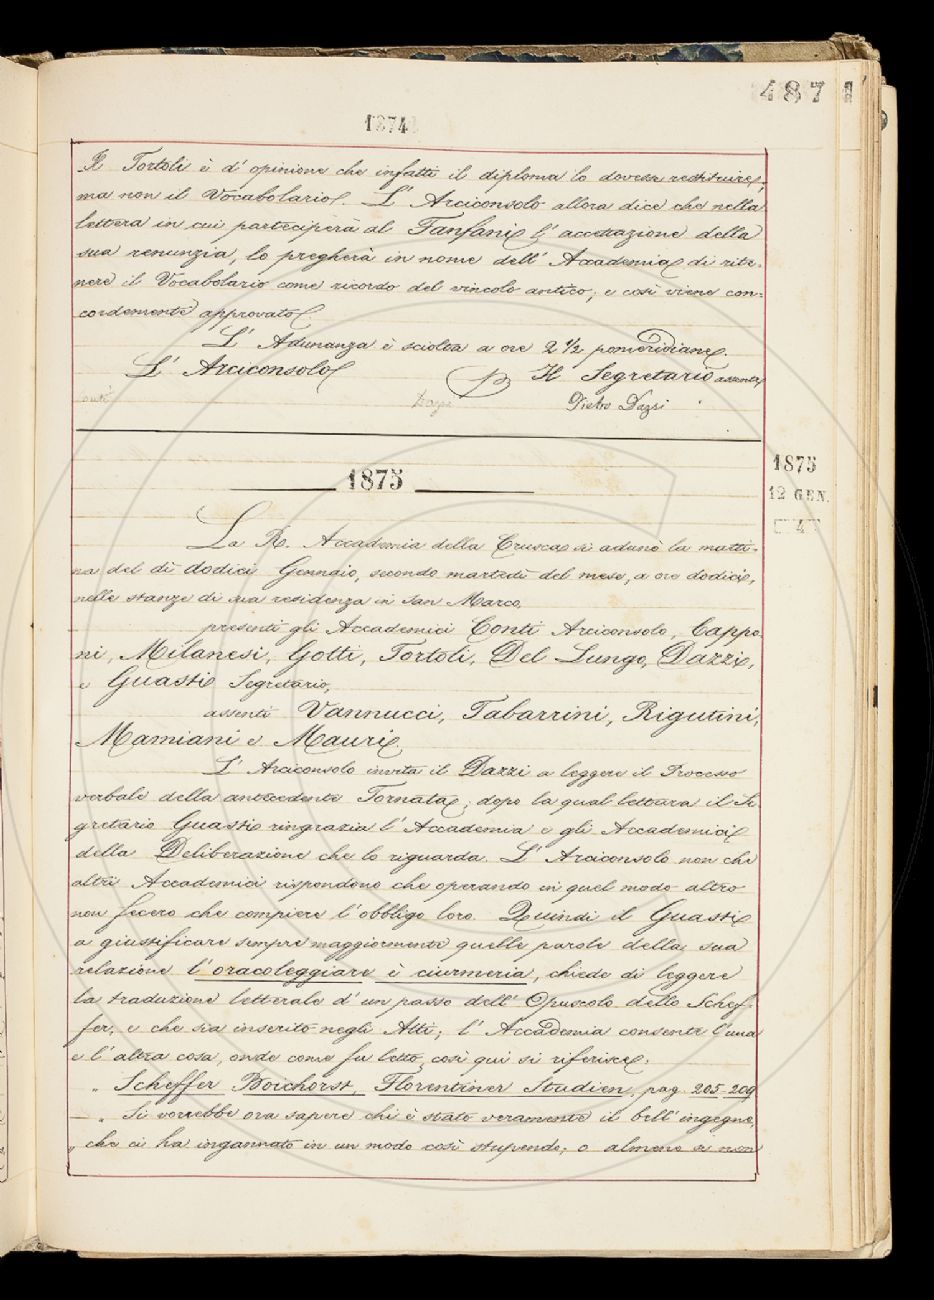 487
1874
Il Tortoli è d' opinione che infatti il diploma lo dovesse restituire,
ma non il Vocabolario. L' Arciconsolo allora dice che nella
lettera in cui parteciperà al Fanfani l' accettazione della
sua renunzia, lo pregherà in nome dell' Accademia di rite-
nere il Vocabolario come ricordo del vincolo antico; e così viene con-
cordemente approvato.
L' Adunanza è sciolta a ore 2 1/2 pomeridiane.
L' Arciconsolo Il Segretario assente
Pietro Dazzi
1875
1875
12 GEN.
4
La R. Accademia della Crusca si adunò la matti-
na del dì dodici Gennaio, secondo martedì del mese, a ore dodici,
nelle stanze di sua residenza in San Marco,
presenti gli Accademici Conti Arciconsolo, Cappo-
ni, Milanesi, Gotti, Tortoli, Del Lungo, Dazzi,
e Guasti Segretario,
assenti Vannucci, Tabarrini, Rigutini,
Mamiani e Mauri.
L' Arciconsolo invita il Dazzi a leggere il Processo
verbale della antecedente Tornata; dopo la qual lettura il Se-
gretario Guasti ringrazia l' Accademia e gli Accademici
della Deliberazione che lo riguarda. L' Arciconsolo non che
altri Accademici rispondono che operando in quel modo altro
non fecero che compiere l' obbligo loro. Quindi il Guasti
a giustificare sempre maggiormente quelle parole della sua
relazione l' oracoleggiare è ciurmeria, chiede di leggere
la traduzione letterale d' un passo dell' Opuscolo dello Schef-
fer, e che sia inserito negli Atti; l' Accademia consente l' una
e l' altra cosa, onde come fu letto, così qui si riferisce.
" Scheffer Boichorst, Florentiner Studien, pag. 205-209
" Si vorrebbe ora sapere chi è stato veramente il bell' ingegno,
" che ci ha ingannato in un modo così stupendo; o almeno se non